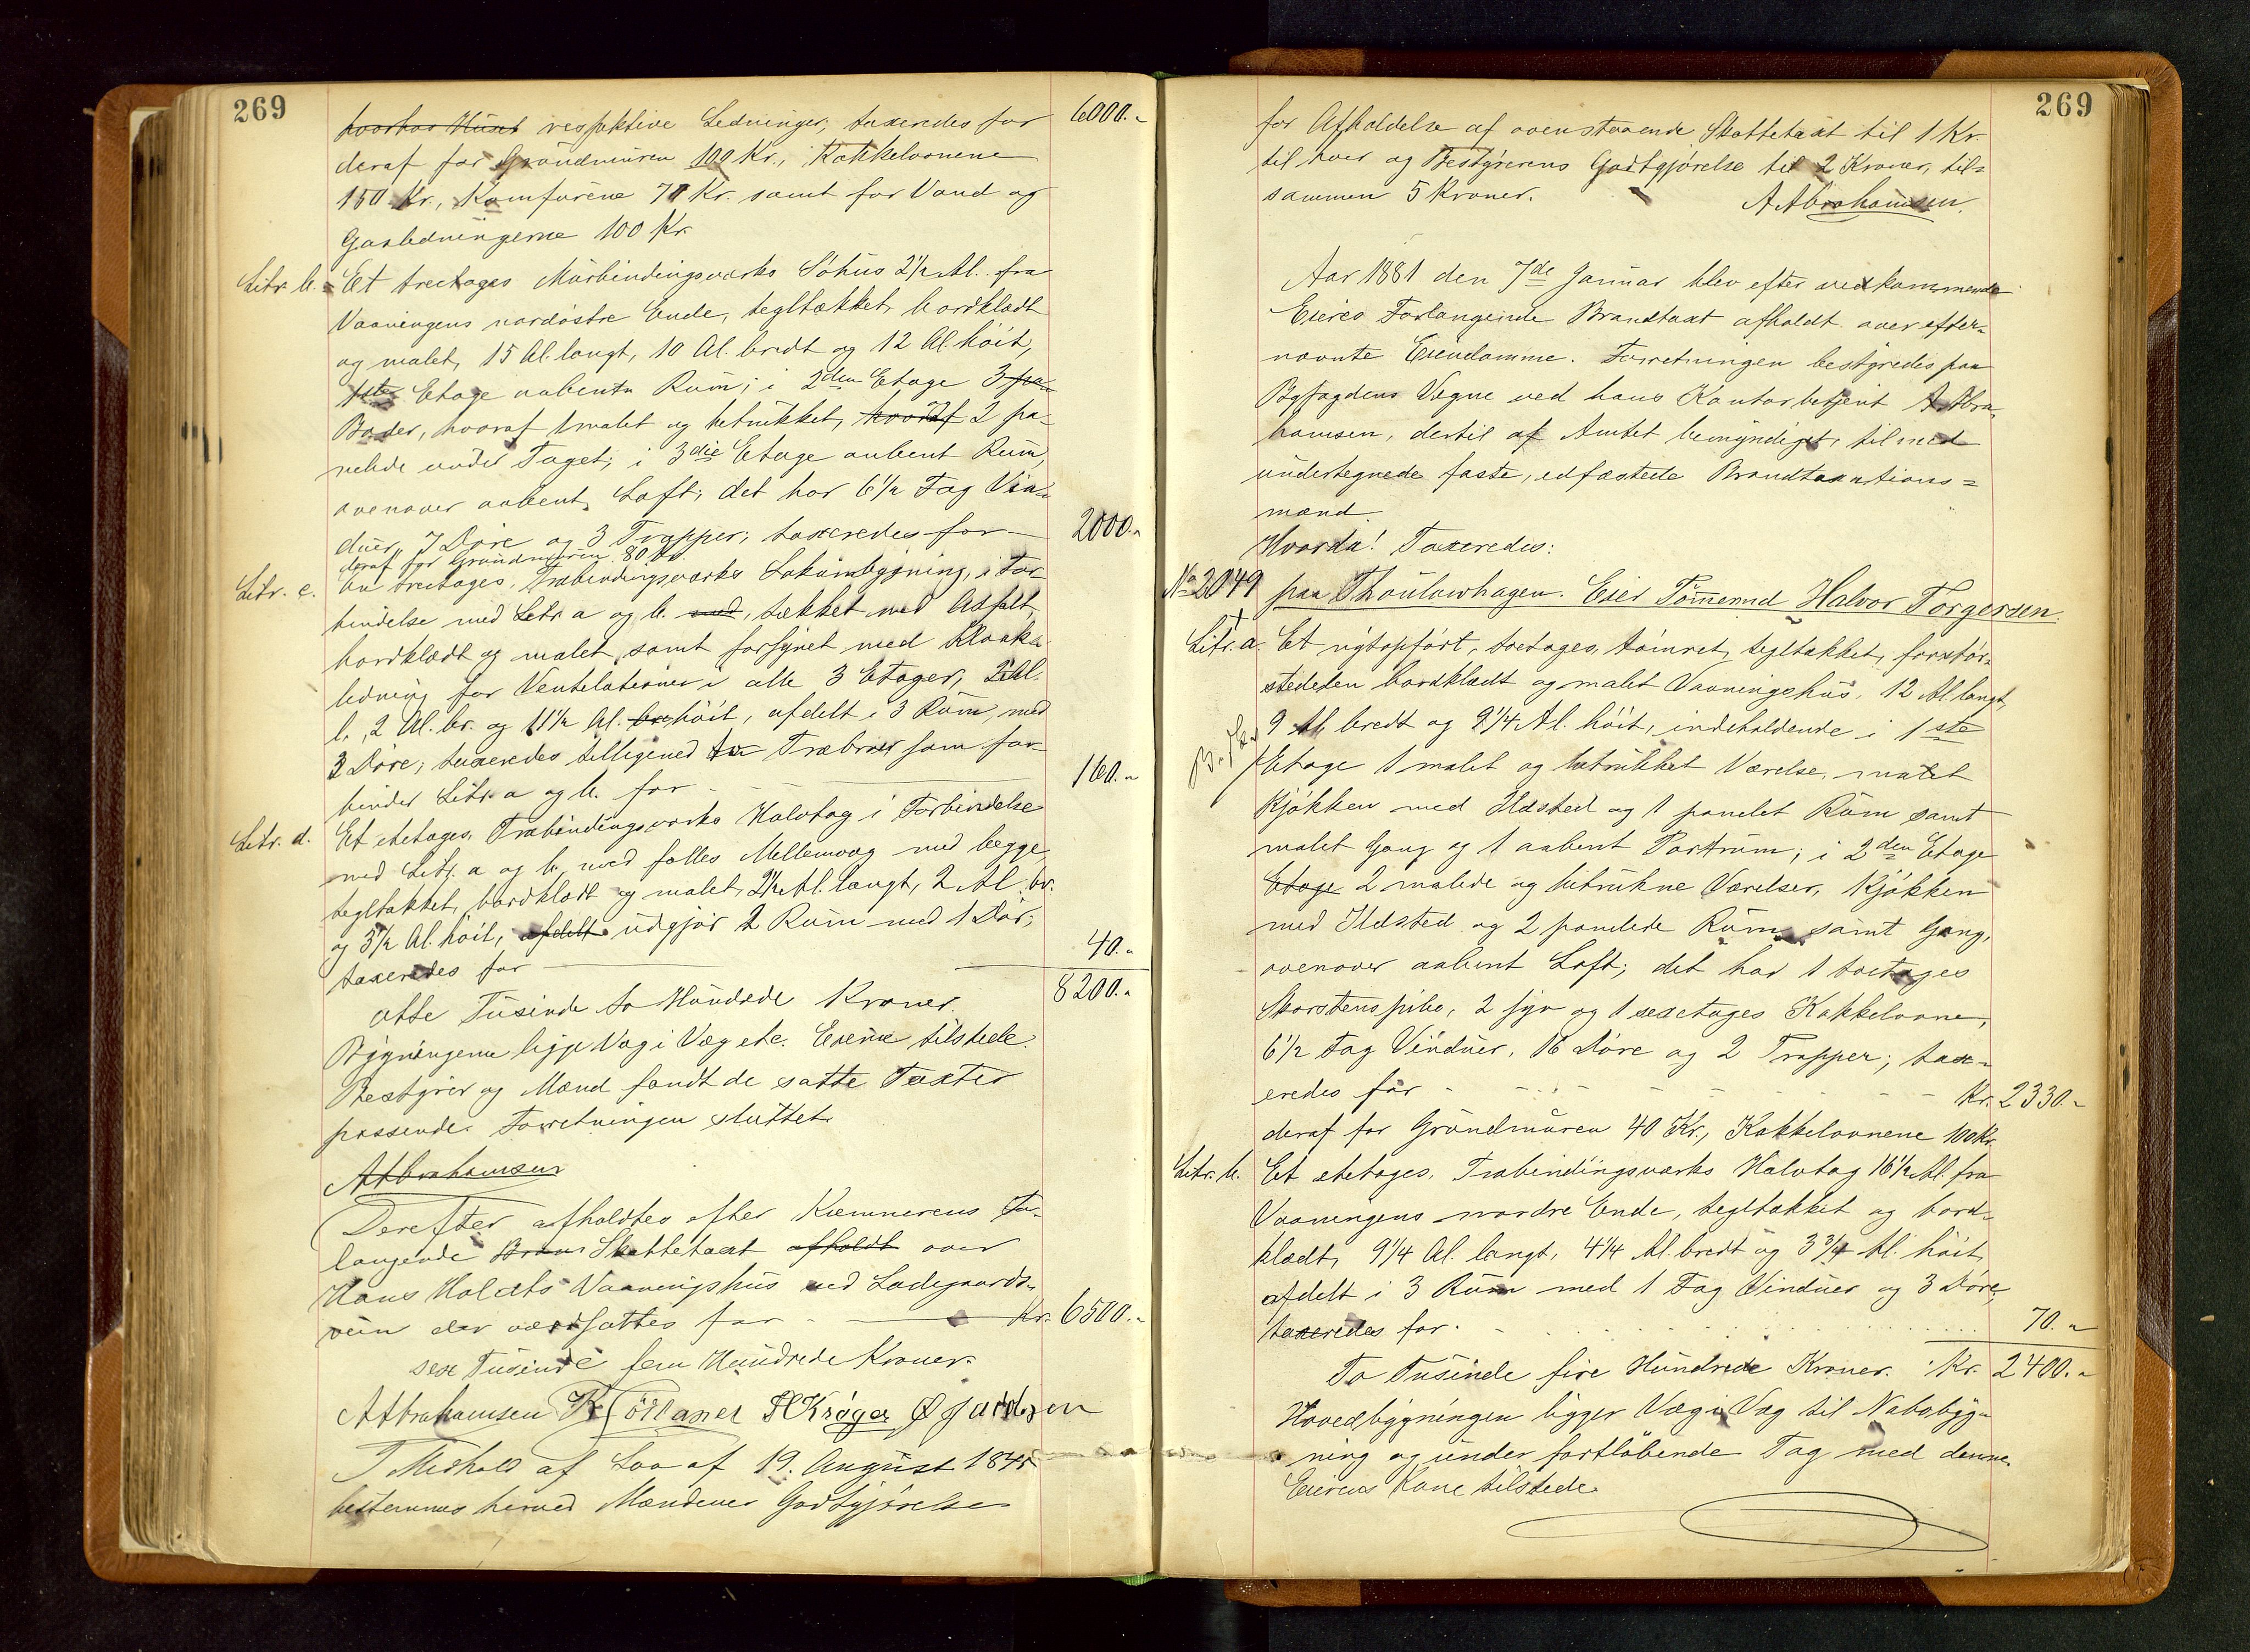 269
hvorhos Huset respektive Ledninger; taxeredes for 6000.-
deraf for Grundmuren 100 Kr., Kakkelovnene
150 Kr., Komfurene 70 Kr. samt for Vand og
Gasledningerne 100 Kr.
Litr. b. Et treetages Murbindingsværks Söhus 2 1/2 Al. fra
Vaaningens nordöstre Ende, tegltækket, bordklædt
og malet, 15 Al. langt, 10 Al. bredt og 12 Al. höit,
1ste Etage aabent Rum; i 2den Etage 3 pa-
Boder, hvoraf 1 malet og betrukket, hvoraf 2 pa-
nelede under Taget; i 3die Etage aabent Rum,
ovenover aabent Loft; det har 6 1/2 Fag Vin-
duer, 7 Döre og 3 Trapper; taxeredes for 2000.-
deraf for Grundmuren 80 Kr.
Litr. c. En treetages, Træbindingsværks Lokumbygning, i For-
bindelse med Litr. a og b. med, tækket med Asfalt,
bordklædt og malet, samt forsynet med Kloak-
ledning for Ventilationer i alle 3 Etager, 2 Al.
l., 2 Al. br. og 11 1/2 Al. bre höit, afdelt i 3 Rum, med
3 Döre; taxeredes tilligemed to Træbroer som for-
binder Litr. a og b. for 160.-
Litr. d. Et etetages, Træbindingsværks Halvtag i Forbindelse
med Litr. a og b. med fælles Mellemvæg med begge,
tegltækket, bordklædt og malet, 2 1/2 Al. langt, 2 Al. br.
og 3 1/2 Al. höit, afdelt udgjør 2 Rum med 1 Dör;
taxeredes for 40.-
8200.-
otte Tusinde to Hundrede Kroner.
Bygningerne ligge Væg i Væg etc. Eierne tilstede.
Bestyrer og Mænd fandt de satte Taxter
passende. Forretningen sluttet.
AAbrahamsen
Derefter afholdtes efter Kæmnerens For-
langende Bran Skattetaxt afholdt over
Hans Holdts Vaaningshus ved Ladegaards-
veien der værdsattes for Kr. 6500.-
sex Tusinde fem Hundrede Kroner.
AAbrahamsen HKröger
I Medhold af Lov af 19. August 1845
bestemmes herved Mændenes Godtgjörelse
269
for Afholdelse af ovenstaaende Skattetaxt til 1 Kr.
til hver og Bestyrerens Godtgjörelse til 2 Kroner, til-
sammen 5 Kroner. AAbrahamsen.
Aar 1881 den 7de Januar blev efter vedkommende
Eieres Forlangende Brandtaxt afholdt over efter-
nævnte Eiendomme. Forretningen bestyredes paa
Byfogdens Vegne ved hans Kontorbetjent A. Abra-
hamsen, dertil af Amtet bemyndiget, tilmed
undertegnede faste, edfæstede Brandtaxations=
mænd.
Hvorda! Taxeredes:
No 2049 paa Thoulowhagen. Eier Tömmermd Halvor Torgersen.
Litr. a. Et nýtopfört, toetages, tömret, tegltækket, forstör-
stedelen bordklædt og malet Vaaningshus, 12 Al. langt,
9 Al. bredt og 9 1/4 Al. höit, indeholdende i 1ste
Etage 1 malet og betrukket Værelse, malet
Kjökken med Ildsted og 1 panelet Rum samt
malet Gang og 1 aabent Portrum; i 2den Etage
Etage 2 malede og betrukne Værelser, Kjökken
med Ildsted og 2 panelede Rum samt Gang,
ovenover aabent Loft; det har 1 toetages
Skorstenspibe, 2 fyr og 1 sexetages Kakkelovne,
6 1/2 Fag Vinduer, 16 Döre og 2 Trapper; tax-
eredes for Kr. 2330.-
deraf for Grundmuren 40 Kr., Kakkelovnene 100 Kr.
Litr. b. Et etetages, Træbindingsværks Halvtag 16 1/2 Al. fra
Vaaningens nordre Ende, tegltækket og bord-
klædt, 9 1/4 Al. langt, 4 1/4 Al. bredt og 3 3/4 Al. höit,
afdelt i 3 Rum med 1 Fag Vinduer og 3 Döre,
taxeredes for 70.-
To Tusinde fire Hundrede Kroner. Kr. 2400.-
Hovedbygningen ligger Væg i Væg til Nabobyg-
ning og under fortlöbende Tag med denne.
Eierens Kone tilstede.